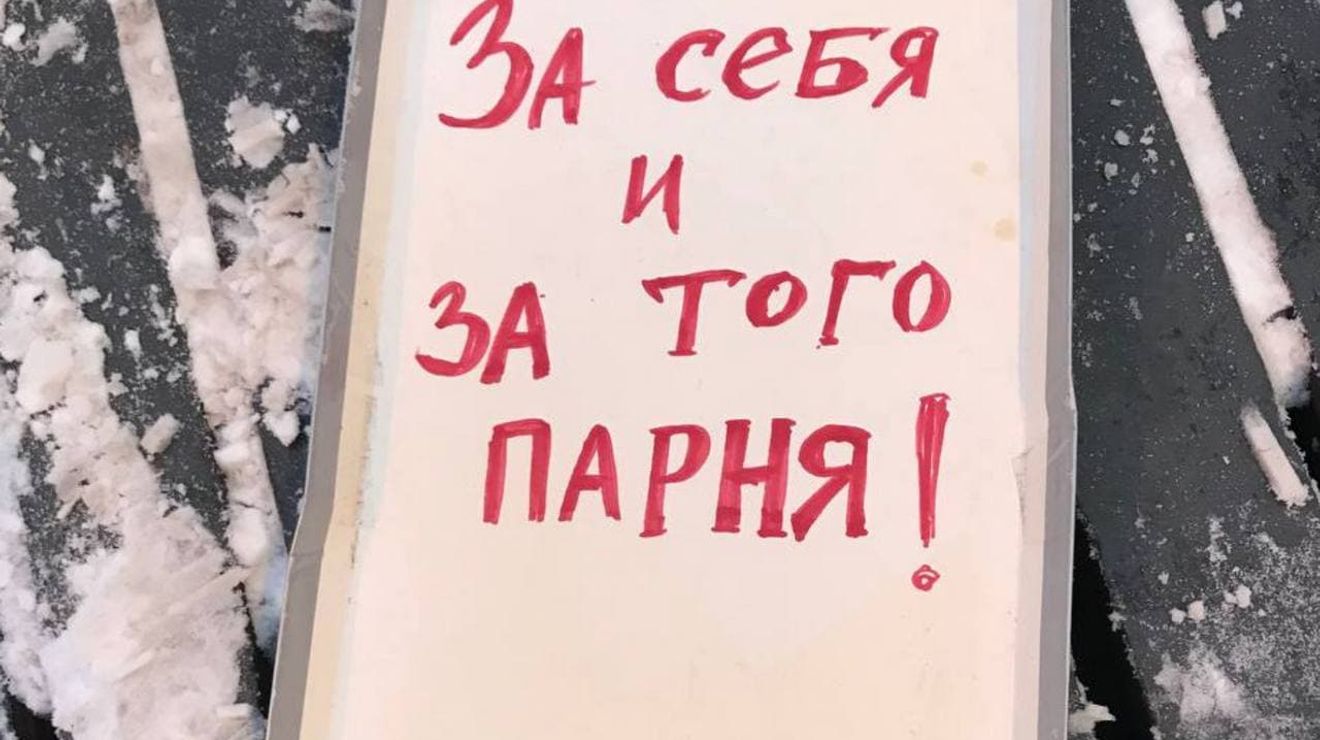 За себя
и
за того
парня!